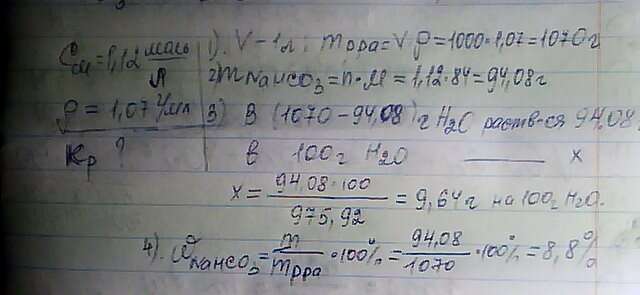 Cм = 1,12 моль/л
ρ = 1,07 г/мл
Kp ?
1). V – 1л ; mрра = Vρ = 1000·1,07 = 1070 г
2) mNaHCO3 = n·M = 1,12·84 = 94,08 г
3) В (1070 – 94,08) г H2O раств-ся 94,08
в 100 г H2O — x
x = 94,08·100 / 975,92 = 9,64 г на 100г H2O.
4). ωNaHCO3 = m / mрра · 100% = 94,08 / 1070 · 100% = 8,8%